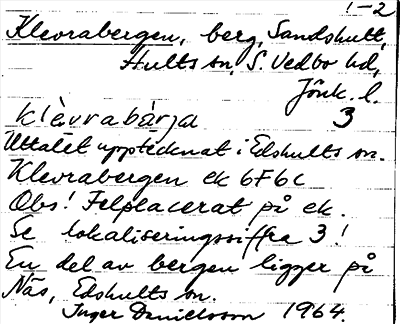 1-2
Klevrabergen, berg, Sandshult,
Hults sn, S. Vedbo hd,
Jönk. l.
klèvrabärja 3
Uttalet upptecknat i Edshults sn.
Klevrabergen ek 6F6c
Obs! Felplacerat på ek.
Se lokaliseringssiffra 3!
En del av bergen ligger på
Näs, Edshults sn.
Inger Danielsson 1964.